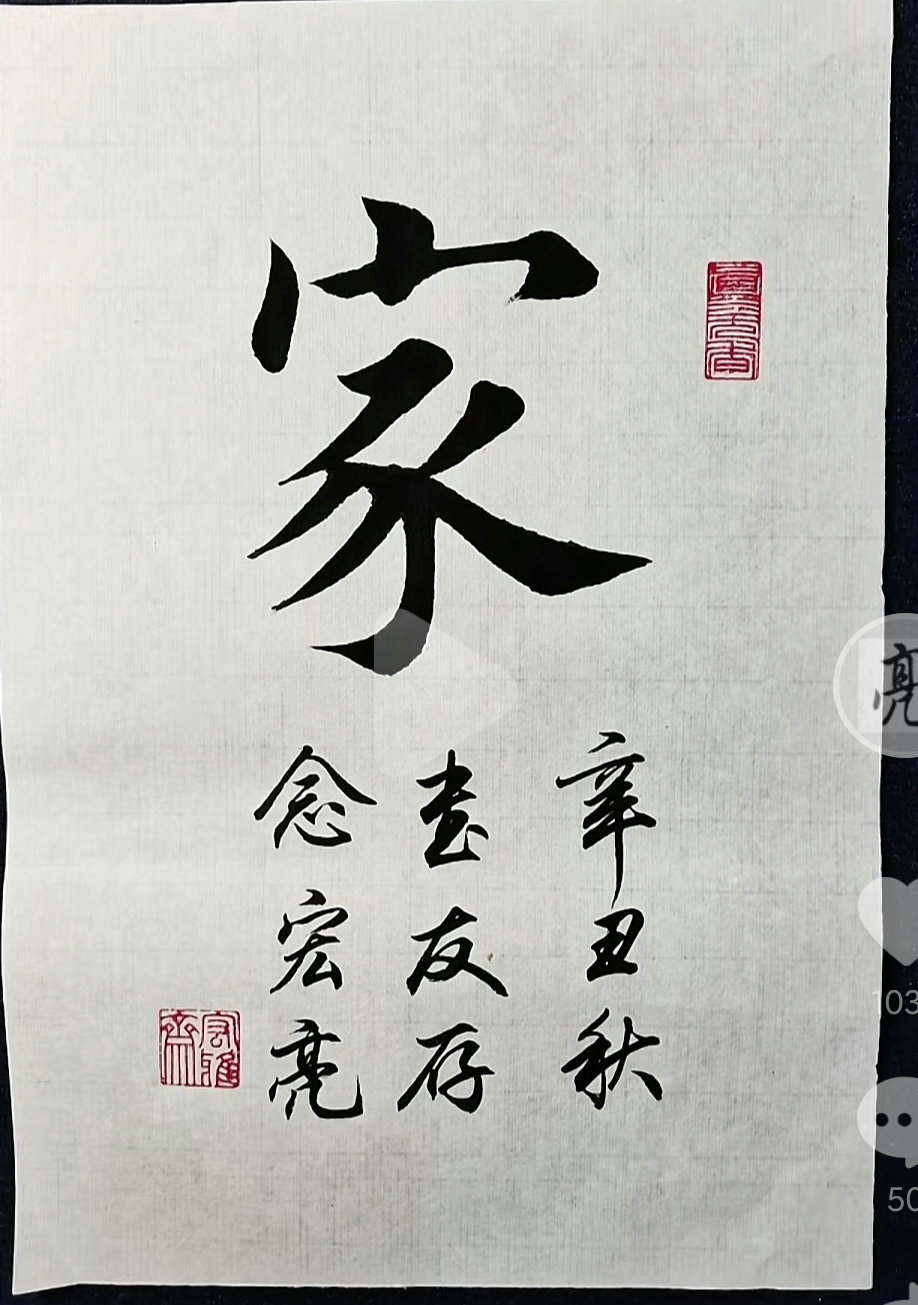 家
辛丑秋
书友存
念宏亮
亮
103
50